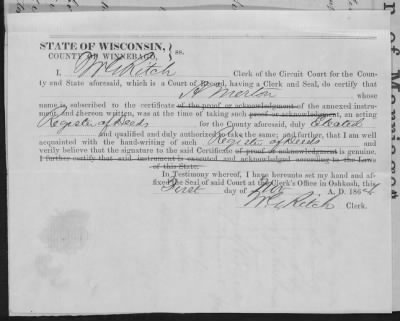 STATE OF WISCONSIN, } ss.
COUNTY OF WINNEBAGO,
I, W G Ritch Clerk of the Circuit Court for the Coun-
ty and State aforesaid, which is a Court of Record, having a Clerk and Seal, do certify that
A Merton whose
name is subscribed to the certificate of the proof or acknowledgment of the annexed instru-
ment, and thereon written, was at the time of taking such proof or acknowledgment, an acting
Register of Deeds for the County aforesaid, duly Elected
and qualified and duly authorized to take the same; and further, that I am well
acquainted with the hand-writing of such Register of Deeds and
verily believe that the signature to the said Certificate of proof or acknowledgment is genuine.
I further certify that said instrument is executed and acknowledged according to the Laws
of this State.
In Testimony whereof, I have hereunto set my hand and af-
fixed the Seal of said Court at the Clerk's Office in Oshkosh, this
First day of A. D. 1864
W G Ritch Clerk.